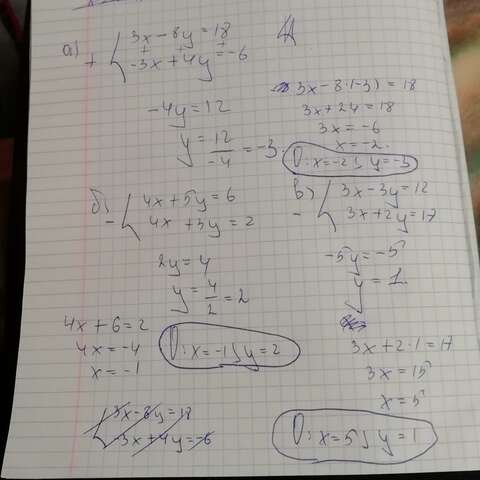 а) + { 3x - 8y = 18
-3x + 4y = -6
-4y = 12
y = 12/-4 = -3.
3x - 8·(-3) = 18
3x + 24 = 18
3x = -6
x = -2.
O: x = -2; y = -3
б) - { 4x + 5y = 6
4x + 3y = 2
2y = 4
y = 4/2 = 2
4x + 6 = 2
4x = -4
x = -1
O: x = -1; y = 2
в) - { 3x - 3y = 12
3x + 2y = 17
-5y = -5
y = 1.
3x + 2·1 = 17
3x = 15
x = 5
O: x = 5; y = 1
{ 3x - 8y = 18
-3x + 4y = -6